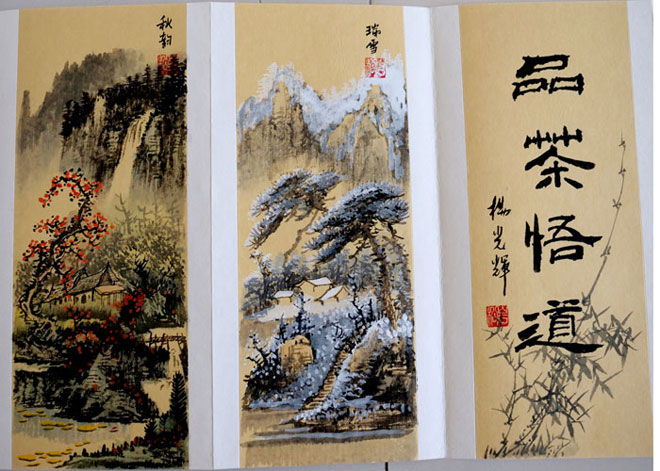 秋韵
瑞雪
品茶悟道
杨光辉